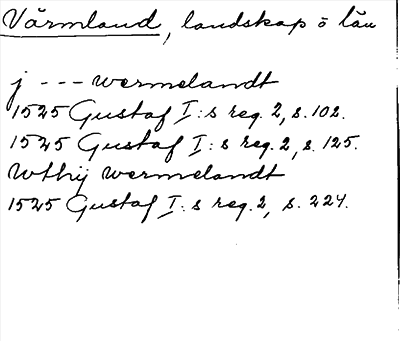 Värmland, landskap o län
j --- wermelandt
1525 Gustaf I:s reg. 2, s. 102.
1525 Gustaf I:s reg. 2, s. 125.
Wthij wermelandt
1525 Gustaf I:s reg. 2, s. 224.